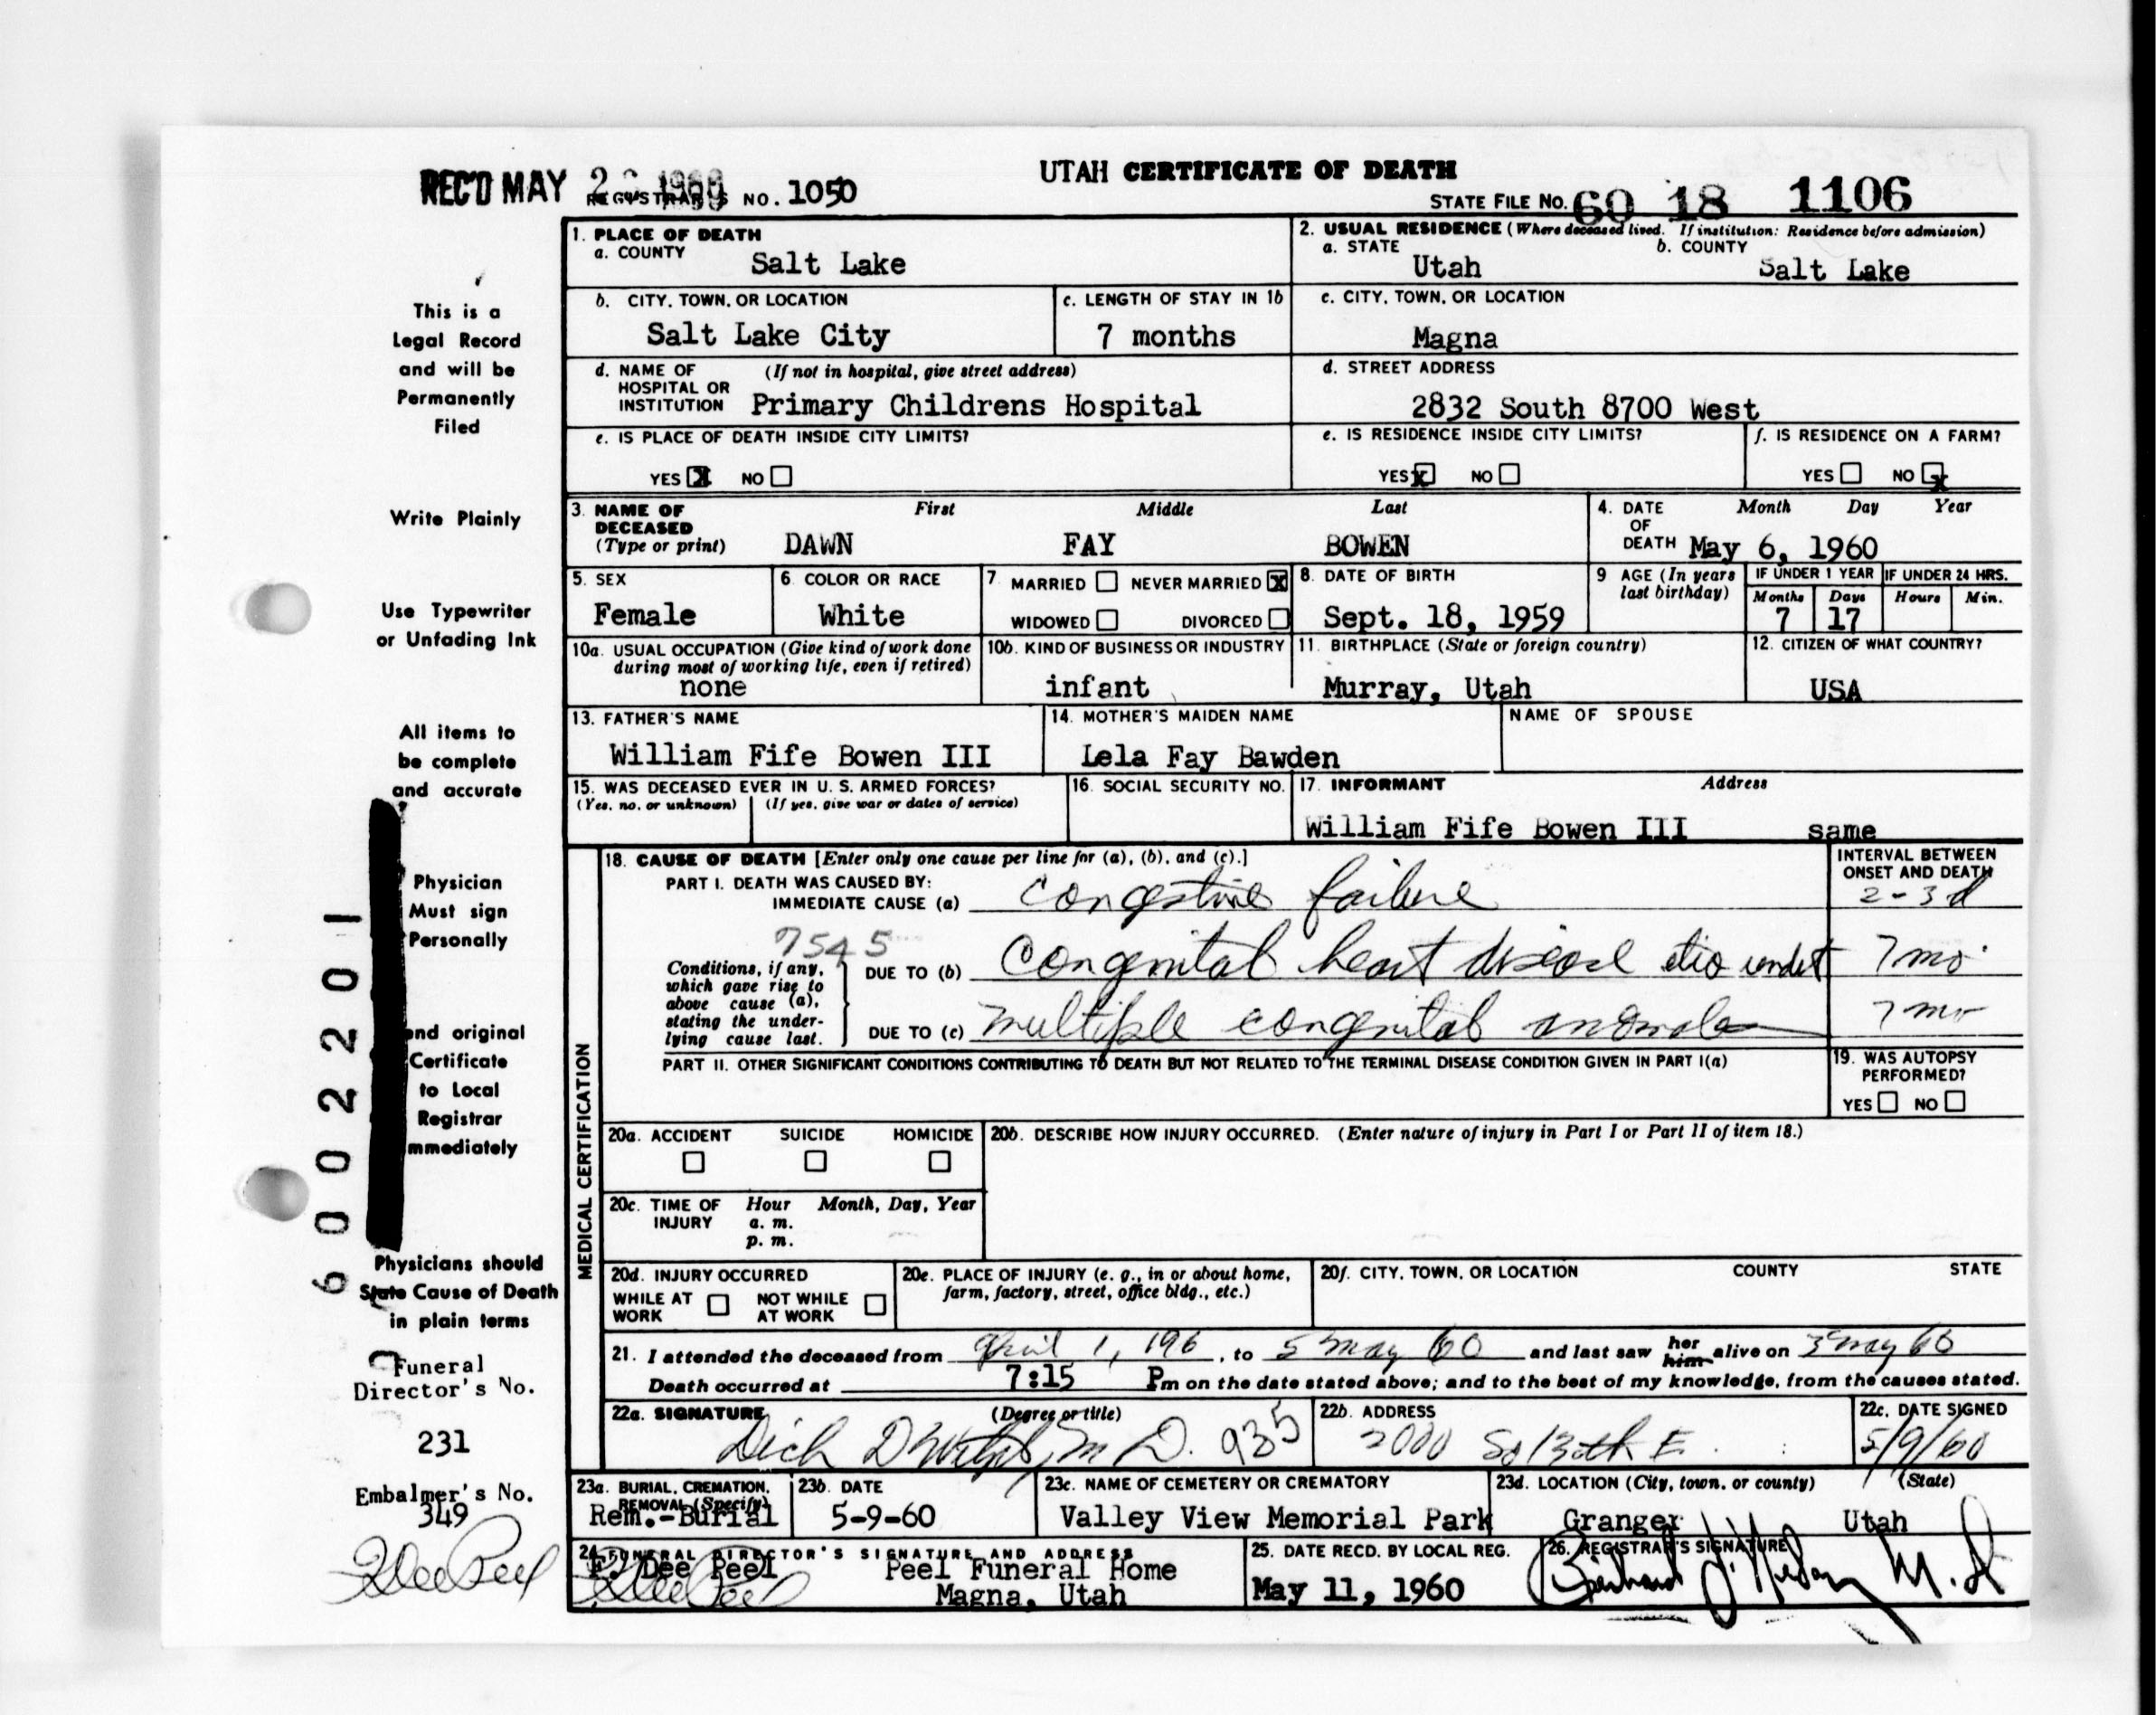 UTAH CERTIFICATE OF DEATH
REC'D MAY 1960 REGISTRAR'S NO. 1050
STATE FILE NO. 60 18 1106
1. PLACE OF DEATH
a. COUNTY
Salt Lake
2. USUAL RESIDENCE (Where deceased lived. If institution: Residence before admission)
a. STATE b. COUNTY
Utah Salt Lake
b. CITY, TOWN, OR LOCATION
Salt Lake City
c. LENGTH OF STAY IN 1b
7 months
c. CITY, TOWN, OR LOCATION
Magna
d. NAME OF (If not in hospital, give street address)
HOSPITAL OR
INSTITUTION Primary Childrens Hospital
d. STREET ADDRESS
2832 South 8700 West
e. IS PLACE OF DEATH INSIDE CITY LIMITS?
YES X NO
e. IS RESIDENCE INSIDE CITY LIMITS?
YES X NO
f. IS RESIDENCE ON A FARM?
YES NO X
3. NAME OF First Middle Last
DECEASED
(Type or print) DAWN FAY BOWEN
4. DATE Month Day Year
OF
DEATH May 6, 1960
5. SEX
Female
6. COLOR OR RACE
White
7. MARRIED NEVER MARRIED X
WIDOWED DIVORCED
8. DATE OF BIRTH
Sept. 18, 1959
9 AGE (In years
last birthday)
IF UNDER 1 YEAR IF UNDER 24 HRS.
Months Days Hours Min.
7 17
10a. USUAL OCCUPATION (Give kind of work done
during most of working life, even if retired)
none
10b. KIND OF BUSINESS OR INDUSTRY
infant
11. BIRTHPLACE (State or foreign country)
Murray, Utah
12. CITIZEN OF WHAT COUNTRY?
USA
13. FATHER'S NAME
William Fife Bowen III
14. MOTHER'S MAIDEN NAME
Lela Fay Bawden
NAME OF SPOUSE
15. WAS DECEASED EVER IN U. S. ARMED FORCES?
(Yes, no, or unknown) (If yes, give war or dates of service)
16. SOCIAL SECURITY NO.
17. INFORMANT Address
William Fife Bowen III same
MEDICAL CERTIFICATION
18. CAUSE OF DEATH [Enter only one cause per line for (a), (b), and (c).]
INTERVAL BETWEEN
ONSET AND DEATH
PART I. DEATH WAS CAUSED BY:
IMMEDIATE CAUSE (a) Congestive failure 2-3 d
7545
Conditions, if any,
which gave rise to
above cause (a),
stating the under-
lying cause last.
DUE TO (b) Congenital heart disease etio undet 7 mo
DUE TO (c) multiple congenital anomalies 7 mo
PART II. OTHER SIGNIFICANT CONDITIONS CONTRIBUTING TO DEATH BUT NOT RELATED TO THE TERMINAL DISEASE CONDITION GIVEN IN PART I(a)
19. WAS AUTOPSY
PERFORMED?
YES NO
20a. ACCIDENT SUICIDE HOMICIDE
20b. DESCRIBE HOW INJURY OCCURRED. (Enter nature of injury in Part I or Part II of item 18.)
20c. TIME OF Hour Month, Day, Year
INJURY a. m.
p. m.
20d. INJURY OCCURRED
WHILE AT NOT WHILE
WORK AT WORK
20e. PLACE OF INJURY (e. g., in or about home,
farm, factory, street, office bldg., etc.)
20f. CITY, TOWN, OR LOCATION COUNTY STATE
21. I attended the deceased from April 1, 196, to 5 May 60 and last saw her him alive on May 60
Death occurred at 7:15 Pm on the date stated above; and to the best of my knowledge, from the causes stated.
22a. SIGNATURE (Degree or title)
Dick M D. 935
22b. ADDRESS
2000 So 13th E.
22c. DATE SIGNED
5/9/60
23a. BURIAL, CREMATION,
REMOVAL (Specify)
Rem.-Burial
23b. DATE
5-9-60
23c. NAME OF CEMETERY OR CREMATORY
Valley View Memorial Park
23d. LOCATION (City, town, or county) (State)
Granger Utah
24. FUNERAL DIRECTOR'S SIGNATURE AND ADDRESS
F. Dee Peel Peel Funeral Home
Magna, Utah
25. DATE RECD. BY LOCAL REG.
May 11, 1960
26. REGISTRAR'S SIGNATURE
M.D.
This is a
Legal Record
and will be
Permanently
Filed
Write Plainly
Use Typewriter
or Unfading Ink
All items to
be complete
and accurate
Physician
Must sign
Personally
end original
Certificate
to Local
Registrar
mmediately
Physicians should
State Cause of Death
in plain terms
Funeral
Director's No.
231
Embalmer's No.
349
F Dee Peel
6002201